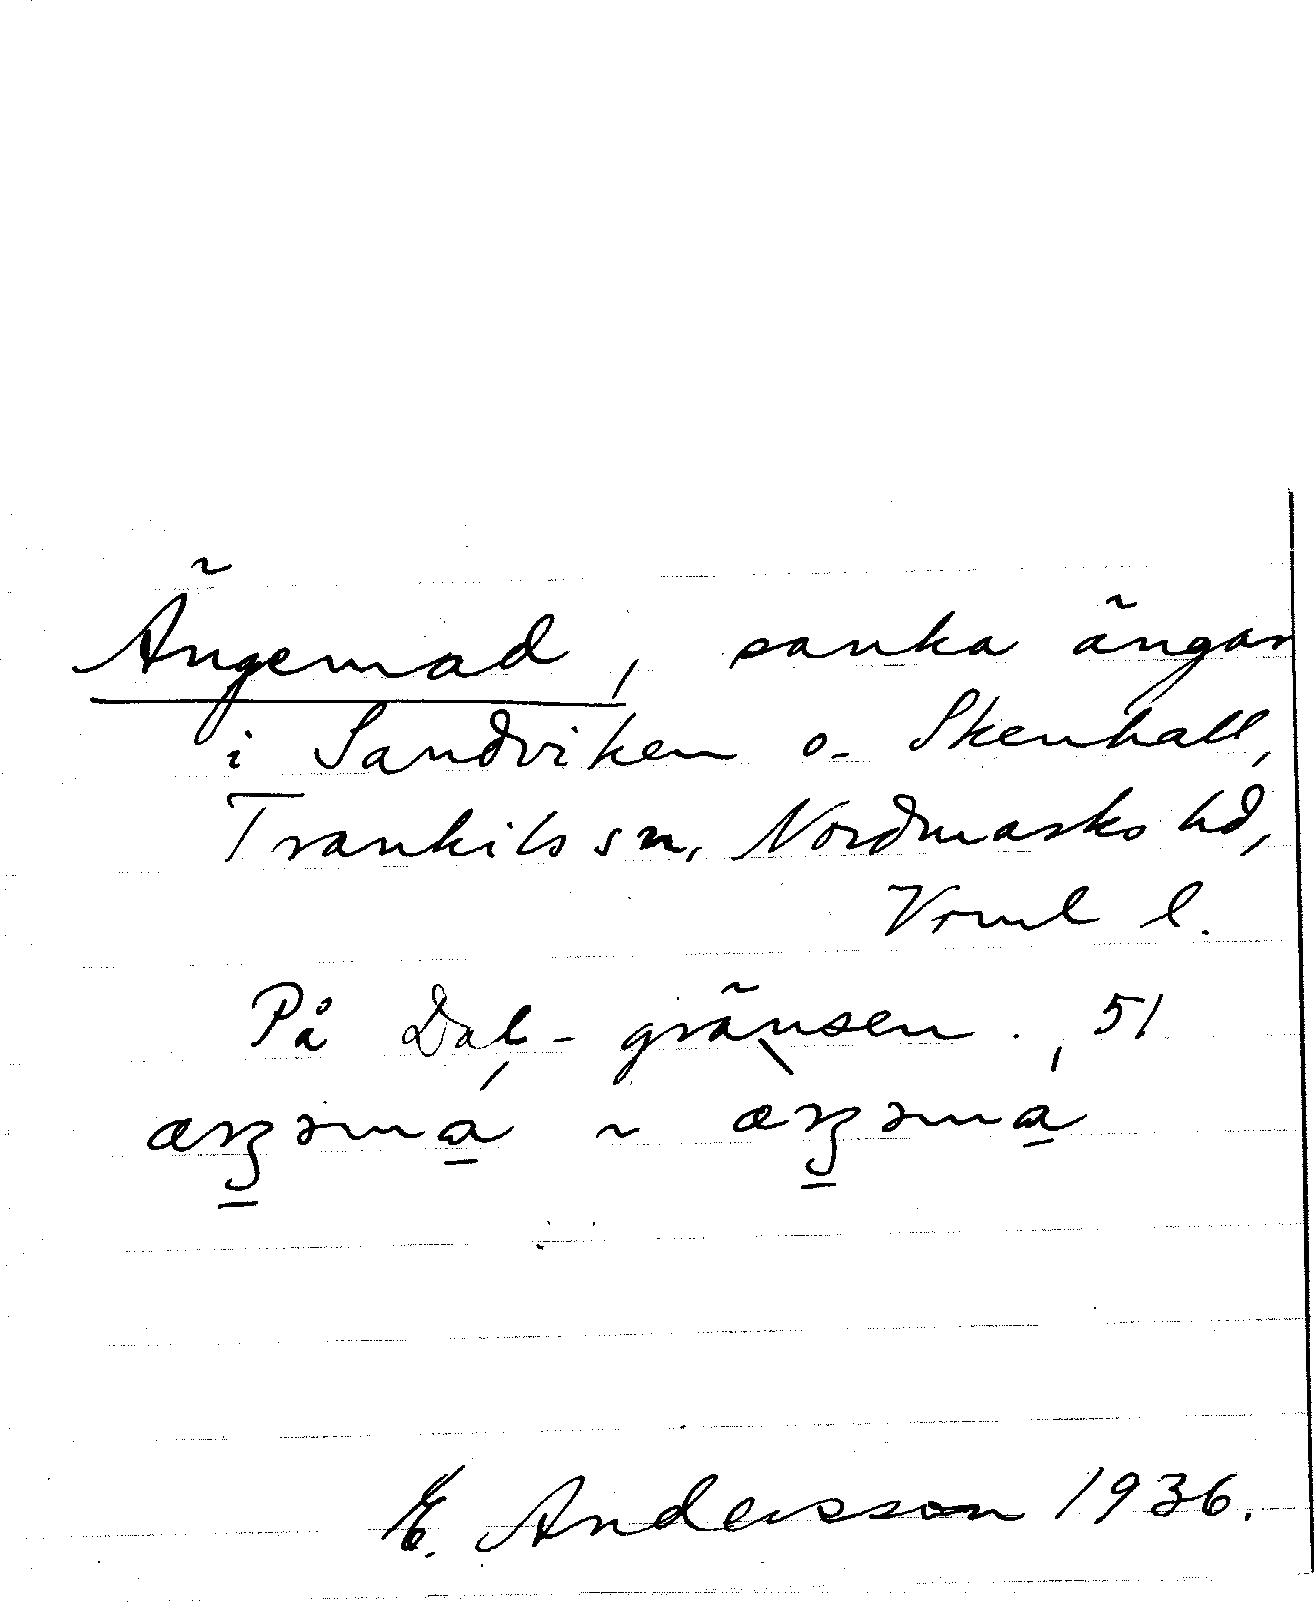 Ängemad, sanka ängar
i Sandviken o. Skenhall,
Trankils sn, Nordmarks hd,
Vrml l.
På Dal-gränsen. 51
~
E. Andersson 1936.